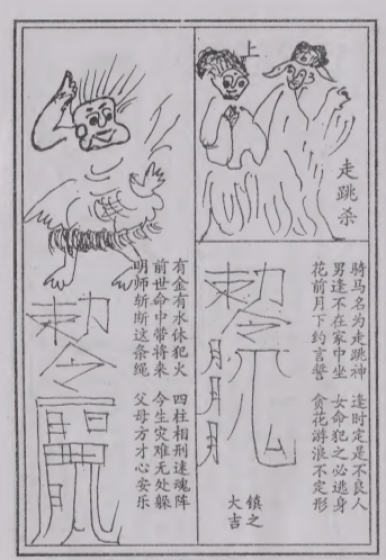 上
走跳杀
骑马名为走跳神 逢时定是不良人
男逢不在家中坐 女命犯之必逃身
花前月下约言誓 贪花游浪不定形
敕令
月
月
月
镇之
大吉
有金有水休犯火 四柱相刑迷魂阵
前世命中带将来 今生灾难无处躲
明师斩断这条绳 父母方才心安乐
敕令